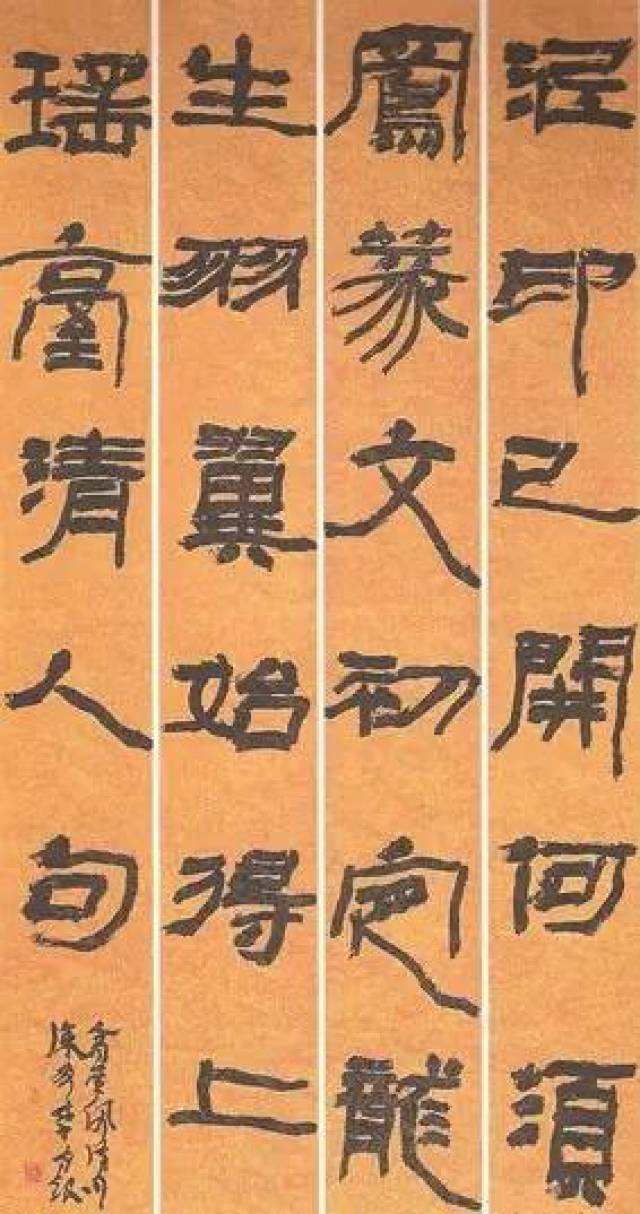 泥印已開何須
鳳篆文初定龍
生羽翼始得上
瑤臺清人句